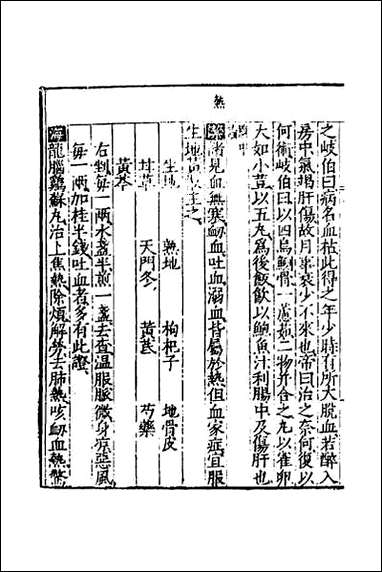 熱
之岐伯曰病名血枯此得之年少時有所大脫血若醉入
房中氣竭肝傷故月事衰少不來也帝曰治之奈何復以
何術岐伯曰以四烏鰂骨一藘茹二物并合之丸以雀卵
大如小荳以五丸為後飯飲以鮑魚汁利腸中及傷肝也
諸見血無寒衂血吐血溺血皆屬於熱但血家症宜服
生地黃 主之
生地 熟地 枸杞子 地骨皮
甘草 天門冬 黃芪 芍藥
黃芩
右剉每一兩水盞半煎一盞去查溫服脈微身涼惡風
每一兩加桂半錢吐血者多有此證
海龍腦雞蘇丸治上焦熱除煩解勞去肺熱咳衂血熱驚